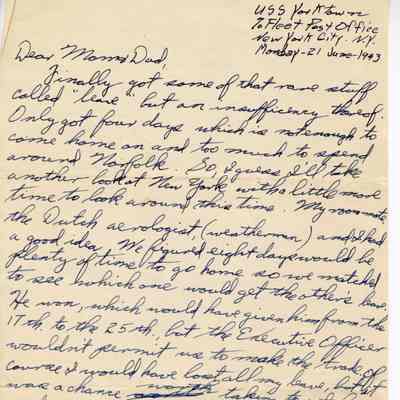 USS Yorktown
℅ Fleet Post Office
New York City, N.Y.
Monday - 21 June - 1943
Dear Mom & Dad,
Finally got some of that rare stuff
called "leave" but an insufficiency thereof.
Only got four days which is not enough to
come home on and too much to spend
around Norfolk. So, I guess I'll take
another look at New York, with a little more
time to look around this time. My roommate,
the Dutch aerologist, (weatherman) and I had
a good idea. We figured eight days would be
plenty of time to go home so we matched
to see which one would get the others leave.
He won, which would have given him from the
17th, to the 25th, but the Executive Officer
wouldn't permit us to make the trade. Of
course I would have lost all my leave, but it
was a chance worth taking